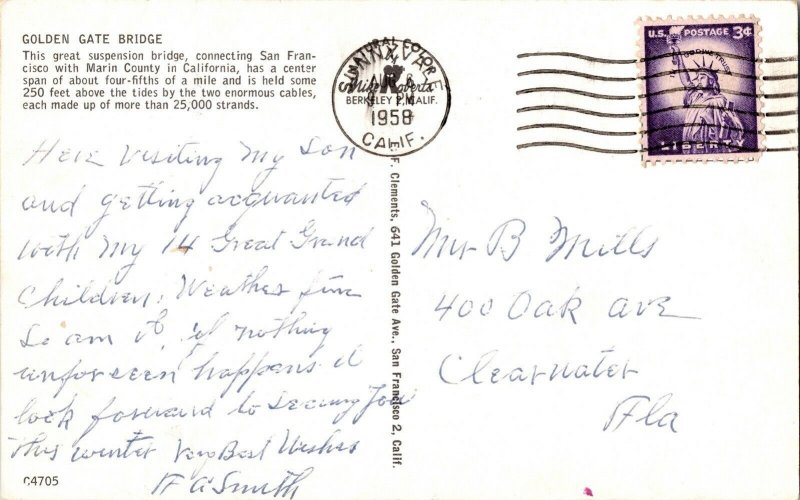 GOLDEN GATE BRIDGE
This great suspension bridge, connecting San Fran-
cisco with Marin County in California, has a center
span of about four-fifths of a mile and is held some
250 feet above the tides by the two enormous cables,
each made up of more than 25,000 strands.
NATURAL COLOR
SUNNYVALE
Mike Roberts
BERKELEY 2, CALIF.
PM
1958
CALIF.
U.S. POSTAGE 3¢
IN GOD WE TRUST
LIBERTY
Here Visiting My Son
and getting acquanted
with My 14 Great Grand
Children. Weather fine
So am I, if nothing
unforseen happens I
look forward to Seeing You
This winter Very Best Wishes
F A Smith
F. Clements, 641 Golden Gate Ave., San Francisco 2, Calif.
Mr B Mills
400 Oak ave
Clearwater
Fla
C4705